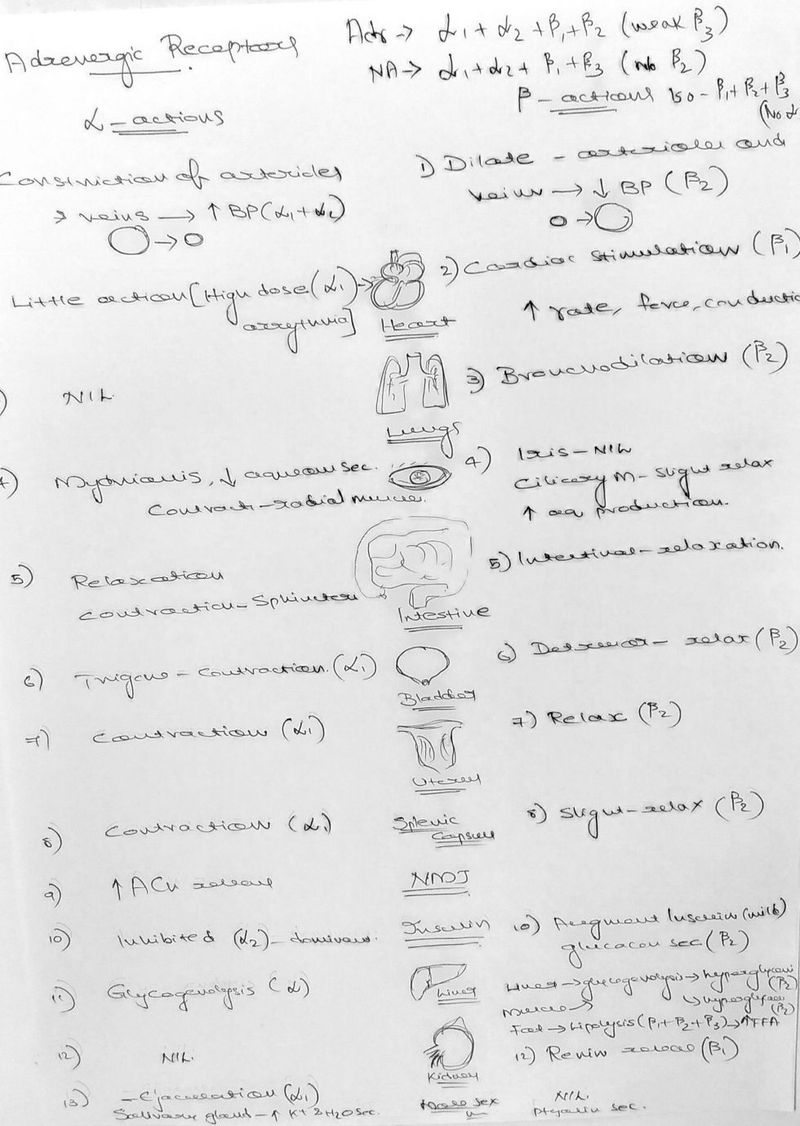 Adrenergic Receptors
Adr → α1 + α2 + β1 + β2 (weak β3)
NA → α1 + α2 + β1 + β3 (No β2)
α - actions
β - actions Iso - β1 + β2 + β3
(No α
Constriction of arterioles
> veins → ↑ BP (α1 + α2)
1) Dilate - arterioles and
veins → ↓ BP (β2)
Little action [High dose (α1) →
arrythmia]
Heart
2) Cardiac stimulation (β1)
↑ rate, force, conductio
) NIL
Lungs
3) Bronchodilation (β2)
4) Mydriasis, ↓ aqueous sec.
Contract - radial muscle.
4) Iris - NIL
Ciliary M - slight relax
↑ aq production.
5) Relaxation
Contraction - Sphincter
Intestine
5) Intestinal - relaxation.
6) Trigone - contraction. (α1)
Bladder
6) Detrusor - relax (β2)
7) Contraction (α1)
Uterus
7) Relax (β2)
8) Contraction (α1)
Splenic
Capsule
8) Slight - relax (β2)
9) ↑ ACh release
NMJ
10) Inhibited (α2) - dominant.
Insulin
10) Augment Insulin (mild)
glucagon sec (β2)
11) Glycogenolysis (α)
Liver
Liver → glycogenolysis → hyperglycemi
(β2)
Muscle →
(β2)
Fat → Lipolysis (β1 + β2 + β3) → ↑ FFA
12) NIL.
Kidney
12) Renin release (β1)
13) - Ejaculation (α1)
Salivary gland - ↑ K+ & H2O sec.
Male sex
NIL.
Ptyalin sec.